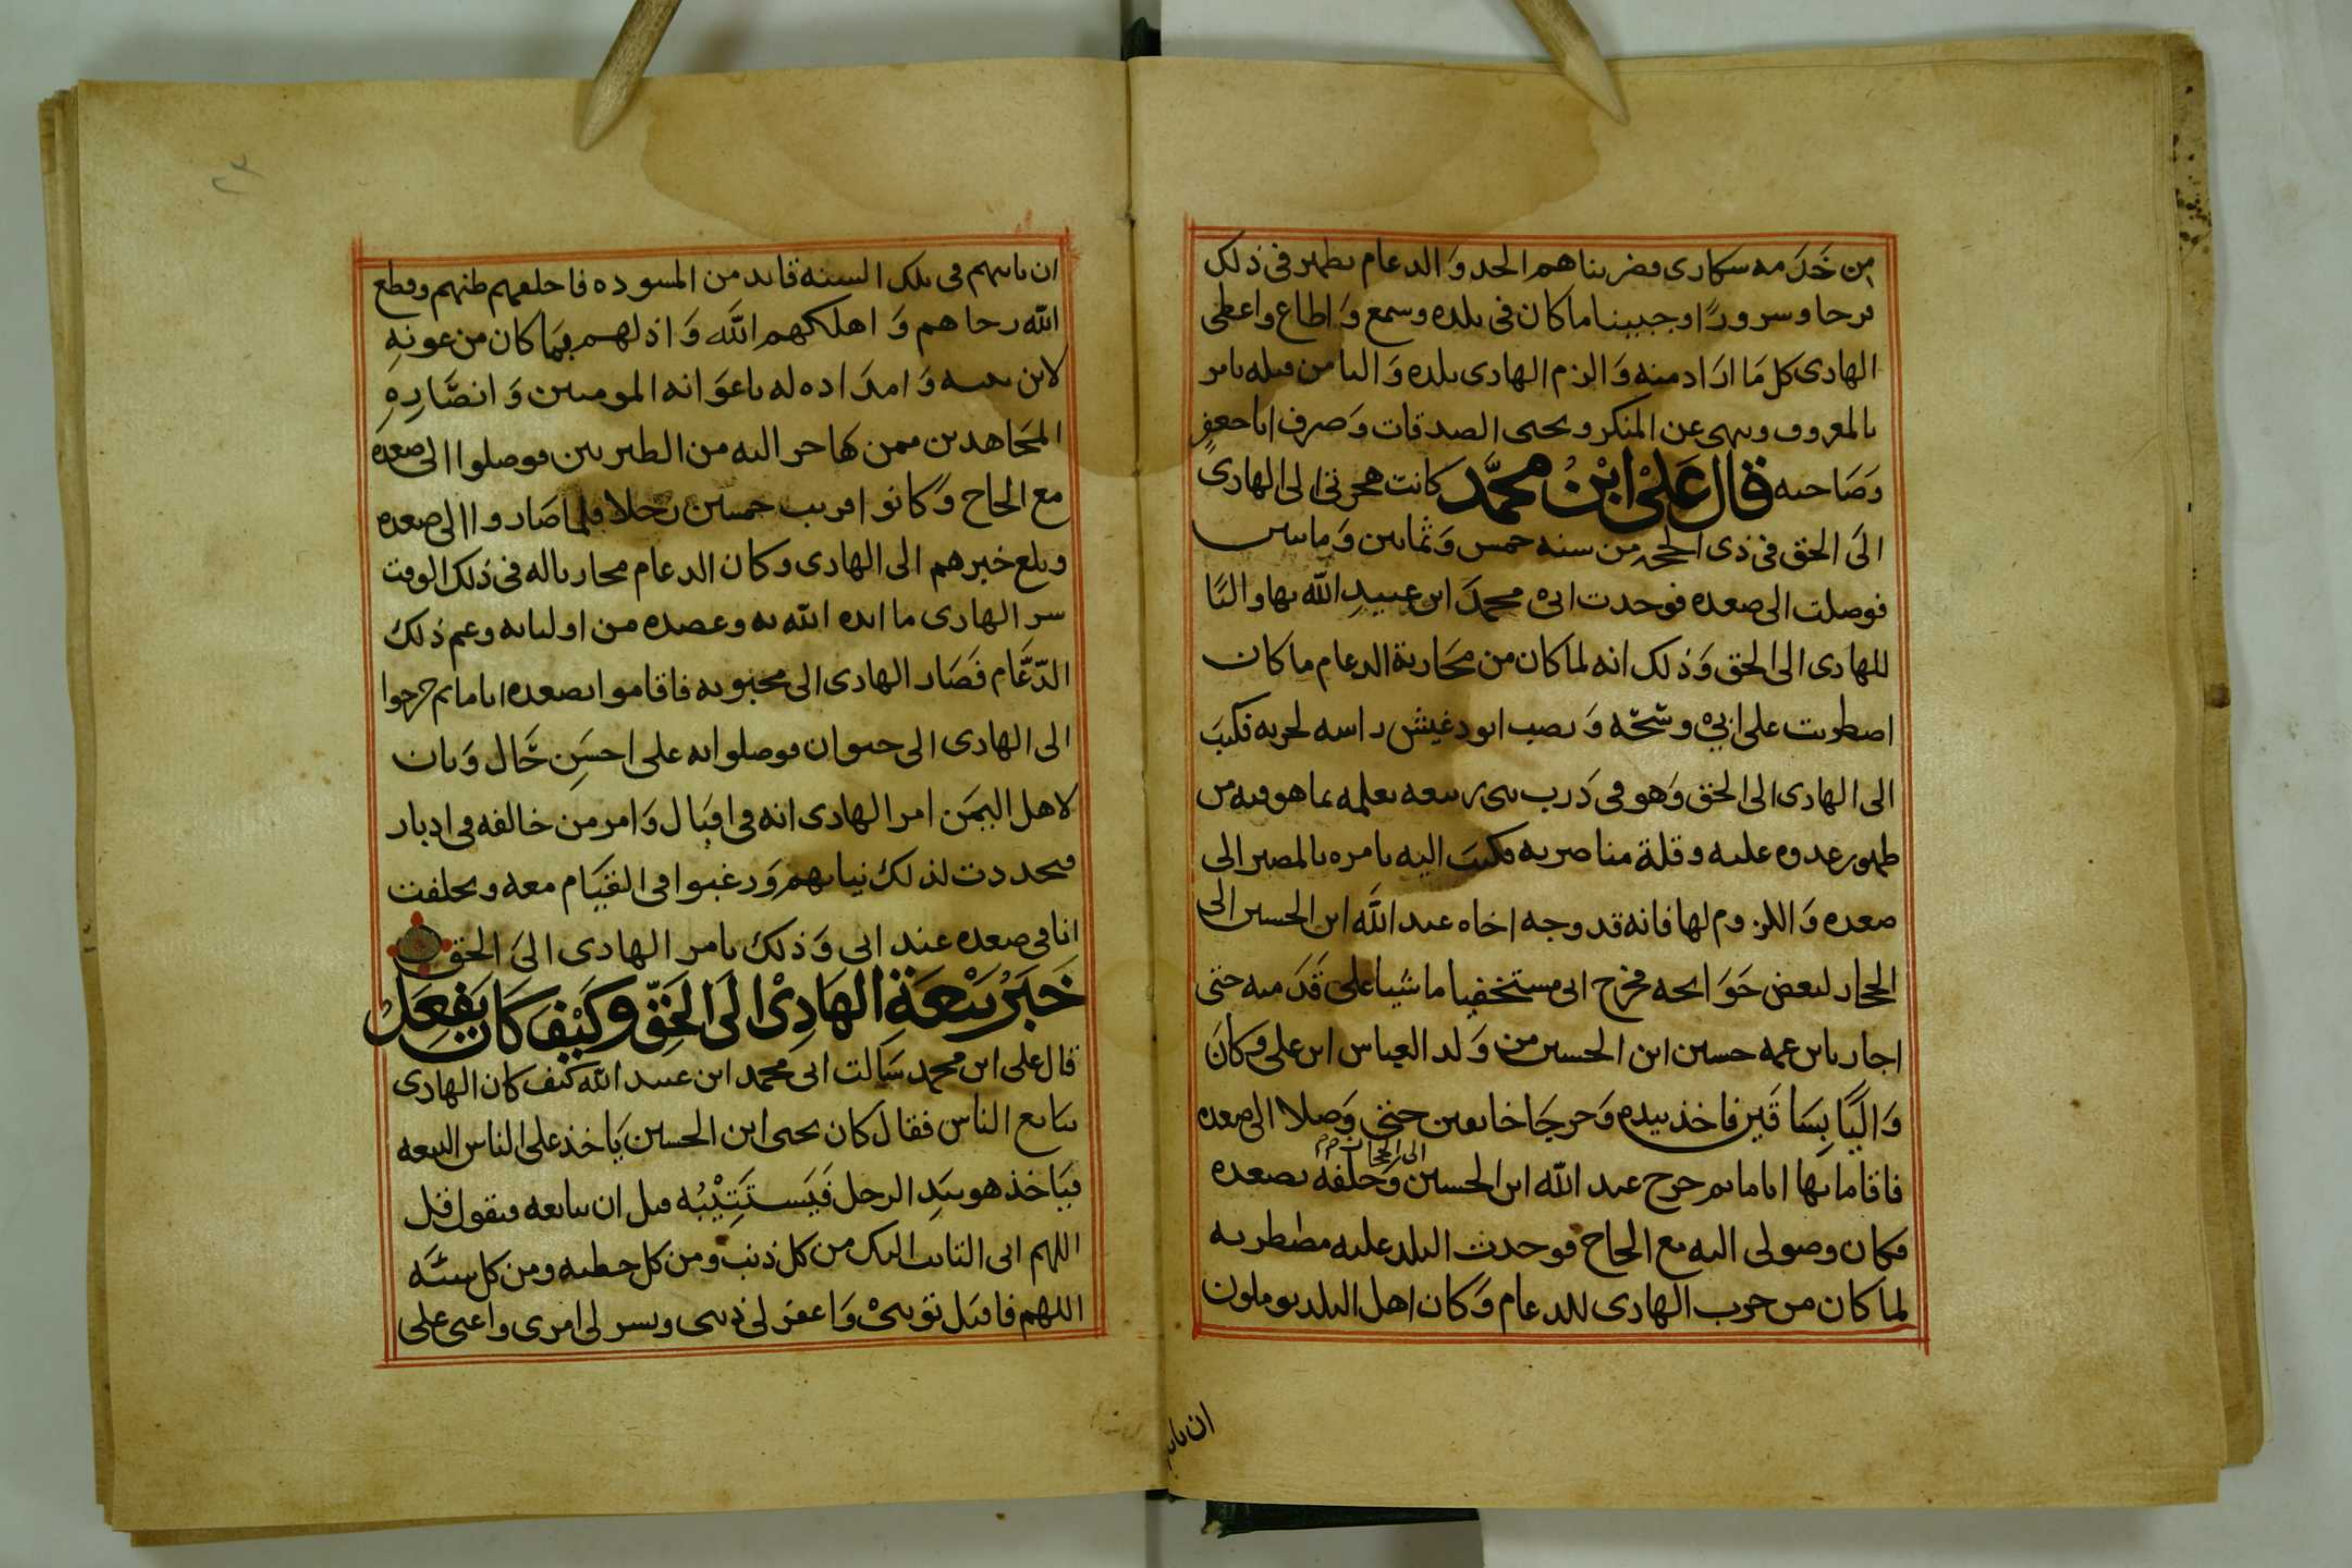 من خدمه سكارى فضربناهم الحد والدعام يظهر في ذلك
فرحا وسرورًا وجبينا ما كان في بلده وسمع وَاطاع واعطى
الهادى كل مَا ارَاد منه وَالزم الهادى بلده وَاليا من قبله يامر
بالمعروف وينهى عن المنكر ويجبى الصدقات وَصرف ابا جعفر
وَصَاحبه قال عَلىْ ابْنُ محمَّد كانت هجرتى الى الهادى
الىَ الحق فى ذى الحجه من سنه خمس وَثمانين وَماتين
فوصلت الى صعده فوجدت ابىْ محمدَ ابن عبيدِ الله بها واليًا
للهادى الى الحق وَذلك انه لما كان من محَاربة الدعام ما كان
اضطربت على ابىْ وشحّه وَنصب ابو دغيش راسه لحربه فكتبَ
الى الهادى الى الحق وَهو فى دَرب بنى ربيعه يعلمه بما هو فيه من
ظهور عدوه عليه وقلة مناصريه فكتبَ اليه يامره بالمصير الى
صعده وَاللزوم لها فانه قد وجه اخاه عبد الله ابن الحسين الى
الحجاز لبعض حَوَايجه فخرج ابى مستخفيا ماشيا على قَدَميه حتى
اجار بابن عمه حسين ابن الحسين من وَلد العباس ابن على وَكانَ
وَاليًا بِسَاقَين فاخذ بيدهِ وَخرجَا خايفين حتى وَصلا الى صعده
فاقاما بها اياما ثم خرج عبد الله ابن الحسين الى الحجاز وَخلفه بصعده
فكان وصولى اليه مع الحاج فوجدت البلد عليه مضطربه
لما كان من حرب الهادى للدعام وَكان اهل البلد يوملون
ان ياتيهم
ان ياتيهم فى تلك السنه قايد من المسوده فاخلفهم ظنهم وقطع
الله رجاهم وَاهلكهم اللَّه وَاذلهم بِمَا كان من عونهِ
لابن نبيه وَامدَاده له باعوَانه المومنين وَانصَارِهِ
المجَاهدين ممن هاجر اليه من الطبريين فوصلوا الى صعدهَ
مع الحاج وَكانوا قريب خمسين رَجلا فلما صَاروا الى صعده
وبلغ خبرهم الى الهادى وكان الدعام محاربا له فى ذلك الوقت
سر الهادى ما ايده الله به وعضده من اوليايه وغم ذلك
الدّعَّام فَصَار الهادى الى محبوبه فاقاموا بصعده اياما ثم خرجوا
الى الهادى الى خيوان فوصلوا به على احسَنِ حَّال وَبان
لاهل اليمَن امر الهادى انه فى اقبَال وَامر من خالفه فى ادبار
فتجددت لذلك نياتهم وَرغبوا فى القيَام معه وتخلفت
انا فى صعده عند ابى وَذلك بامر الهادى الىَ الحق
خَبَرُ بَيْعَةِ الهَادِىْ الىَ الحَقِّ وكَيْفَ كَانَ يَفعَلُ
قال على ابن محمد سَالت ابى محمد ابن عبيد الله كيف كان الهادى
يبايع الناس فقال كان يحيى ابن الحسين يَاخذ على الناس البيعه
فيَاخذ هو بيَدِ الرجل فَيَستَتِيْبُه قبل ان يبايعه فيقول قل
اللهم انى التايب اليك من كل ذنب ومن كل خطيه ومن كل سيئَه
اللهم فاقبَل توبتىْ وَاغفر لى ذنبى ويسر لى امرى واعنى على
٢٣